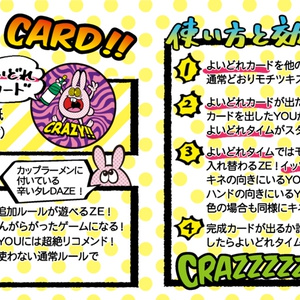 CARD!!
いどれ
カード
CRAZY!!
カップラーメンに
付いている
辛いタレDAZE!
追加ルールが遊べるZE!
んがらがったゲームになる!
YOUには超絶リコメンド!
使わない通常ルールで
使い方と効
1 よいどれカードを他の
通常どおりモチツキス
2 よいどれカードが出た
カードを出したYOUが
よいどれタイムがス
3 よいどれタイムではモ
入れ替わるZE!イッ
キネの向きにいるYO
ハンドの向きにいるY
色の場合も同様にキネ
4 完成カードが出るか
したらよいどれタイム
CRAZZZZZ